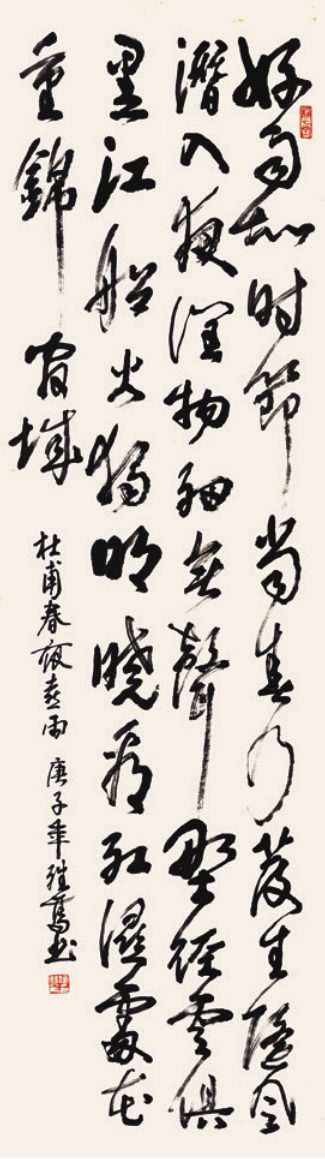 好雨知时節當春乃發生隨風
潛入夜潤物細無聲野徑雲俱
黑江船火獨明曉看紅濕處花
重錦官城
杜甫春夜喜雨 庚子年書